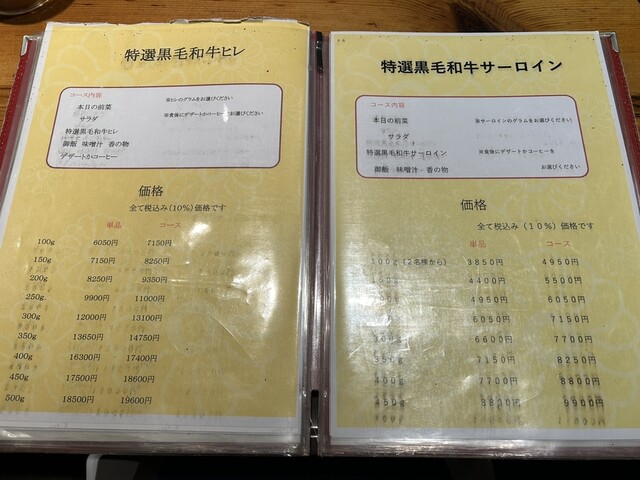 特選黒毛和牛ヒレ
コース内容
※ヒレのグラムをお選びください
本日の前菜
※食後にデザートかコーヒーお選びください
サラダ
特選黒毛和牛ヒレ
御飯 味噌汁 香の物
デザートかコーヒー
価格
全て税込み(10%)価格です
単品 コース
100g 6050円 7150円
150g 7150円 8250円
200g 8250円 9350円
250g. 9900円 11000円
300g 12000円 13100円
350g 13650円 14750円
400g 16300円 17400円
450g 17500円 18600円
500g 18500円 19600円
特選黒毛和牛サーロイン
コース内容
本日の前菜 ※サーロインのグラムをお選びください)
サラダ
特選黒毛和牛サーロイン ※食後にデザートかコーヒーを
御飯 味噌汁 香の物 お選びください
価格
全て税込み(10%)価格です
単品 コース
100g (2名様から) 3850円 4950円
4400円 5500円
4950円 6050円
6050円 7150円
6600円 7700円
350g 7150円 8250円
400g 7700円 8800円
450g 8800円 9900円